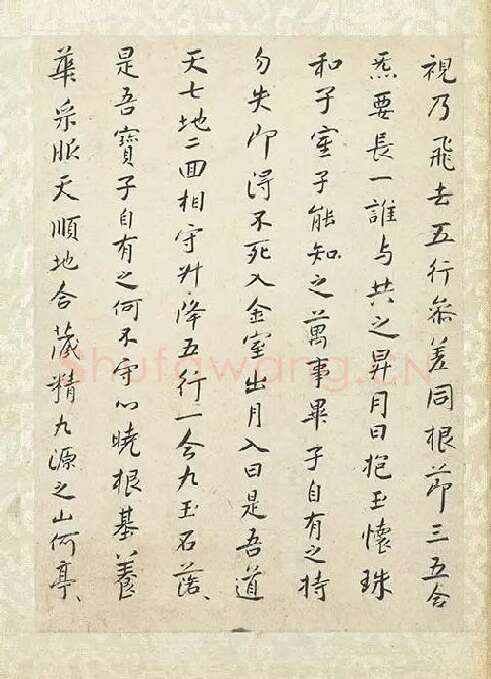 視乃飛去五行叅差同根莭三五合
炁要長一誰与共之昇月日抱玉懷珠
和子室子能知之萬事畢子自有之持
勿失即得不死入金室出月入日是吾道
天七地二回相守升降五行一合九玉石落〻
是吾寶子自有之何不守心曉根基養
華采服天順地合藏精九源之山何亭〻
Shufawang.CN